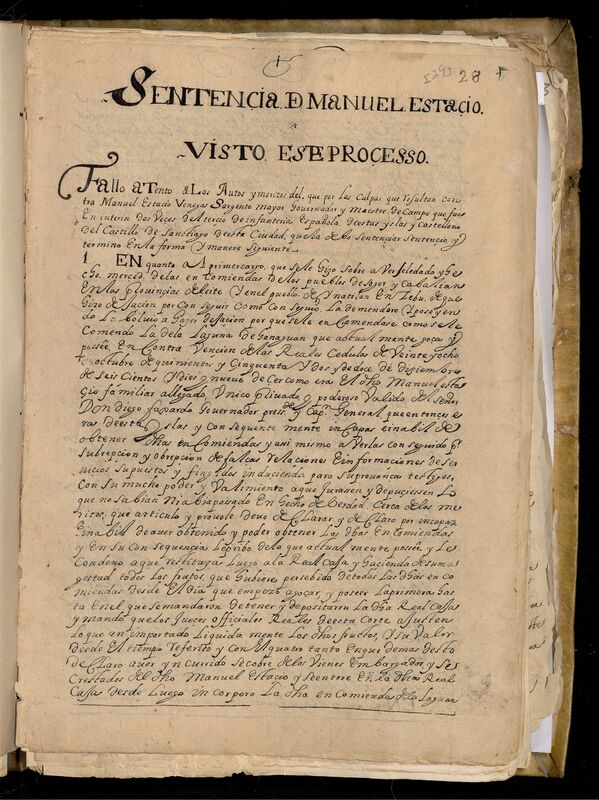 1
E293 28
SENTENCIA D MANUEL. ESTACIO.
VISTO ESTE PROCESSO.
Fallo aTento a Los Autos y meritos del, que por las Culpas que resultan con
tra Manuel Estacio Venegas Sargento mayor Governador y Maestre de Campo que fue
En interin Dos Veces del tercio de infanteria Española Deestas yslas y Castellano
Del Castillo de Santiago deesta Ciudad, que la debo Sentenciar Sentencio, y
termino En la forma y manera siguiente
1 EN quanto al primer cargo, que sele hizo sobre aver
cho merced delas en Comiendas delos pueblos de y Cabalian
En las provincias de leite y en el pueblo de En Zebu de que
hizo dejacion por Con seguir como con siguio La de
do La bolvio a dejacion por que sele en Comendase como sele
en Comendo La dela Laguna de que actual mente goza y
posee En Contra Vencion delas Reales Cedulas de Veinte y ocho
de octubre de quinientos y Cinquenta Y dos y de doce de Diziembre
de Seis Cientos Y dies y nueve de Ser como era El dho Manuel esta
cio familiar allegado, Vnico privado y poderoso Valido del Señor
Don Diego faxardo Governador pres.te y Cap.n General que entonces e
ra Deestas yslas y Con seguente mente in Capas e inabil de
obtener dhas en Comiendas y asi mismo a Verlas con seguido p.r
Subrepcion y obrepcion de falcas Relaciones E informaciones de Ser
vicios Supuestos y fingidos induciendo para Su provança testigos,
Con su mucho poder y Valimiento a que Jurasen y depuciessen Lo
que no sabian Ni a bia pasado En hecho de Verdad. Cerca delos me
ritos, que articulo y provo le devo de Clarar y de Claro por incapaz
E inabil de aver obtenido y poder obtener Las dhas En Comiendas
y En Su Con Sequencia Le privo dela que actual mente posee y Le
Condeno aque Restituya Luego ala Real Caja y hacienda de su ma
gestad todos los frutos, que hubiere percebido de todas Las dhas en co
miendas desde El dia que empezo a goçar, y poseer La primera has
ta En el que se mandaron detener y depositar en La dha Real Caja
y mando que los Jueces officiales Reales de esta Corte ajusten
Lo que an importado Liquida mente Los dhos frutos, Y su Valor
desde El tiempo Referido y con El quatro tanto En que demas desto
de Claro aver yn Currido se cobre delos Vienes Em bargados, y Se
Crestados del dho Manuel Estacio y Se entere En La dha Real
Caja desde Luego Yn Corporo La dha en Comienda dela Laguna